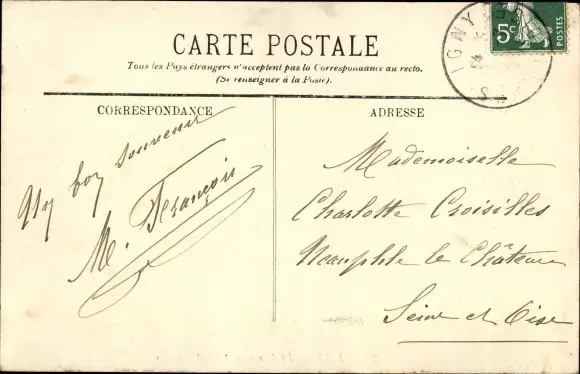 CARTE POSTALE
Tous les Pays étrangers n'acceptent pas la Correspondance au recto.
(Se renseigner à la Poste).
CORRESPONDANCE
ADRESSE
IGNY
S.
5c
POSTES
Un bon souvenir
M. François
Mademoiselle
Charlotte Croisilles
Neauphle le Château
Seine et Oise